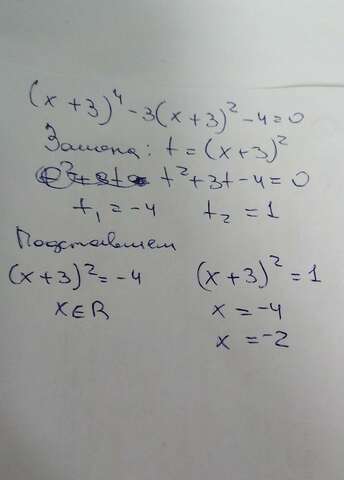 (x+3)⁴-3(x+3)²-4=0
Замена: t=(x+3)²
t²+3t-4=0
t₁=-4 t₂=1
Подставляем
(x+3)²=-4 (x+3)²=1
x∈R x=-4
x=-2